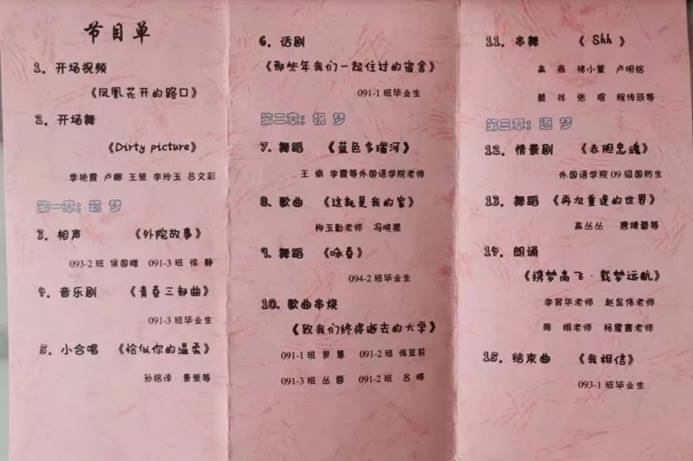 节目单
1、开场视频
《凤凰花开的路口》
2、开场舞
《Dirty picture》
李艳霞 卢娜 王莹 李玲玉 吕文彩
第一章：筑 梦
3、相声 《外院故事》
093-2 班 徐国赠 091-3 班 徐 静
4、音乐剧 《青春三部曲》
091-3 班毕业生
5、小合唱 《恰似你的温柔》
孙铭泽 景莹等
6、话剧
《那些年我们一起住过的宿舍》
091-1 班毕业生
第二章：祝 梦
7、舞蹈 《蓝色多瑙河》
王 南 李霞等外国语学院老师
8、歌曲 《这就是我的家》
柳玉勤老师 冯晓茜
9、舞蹈 《咏春》
094-2 班毕业生
10、歌曲串烧
《致我们终将逝去的大学》
091-1 班 罗 慧 091-2 班 徐亚莉
091-3 班 丛 蓉 091-2 班 吕 娜
11、串舞 《 Shh 》
高 燕 褚小萱 卢明铭
颜 祥 张 琨 程传辰等
第三章：逐 梦
12、情景剧 《赤胆忠魂》
外国语学院 09 级国防生
13、舞蹈 《再次重逢的世界》
高丛丛
14、朗诵
《携梦高飞·载梦远航》
李育华老师 赵昱伟老师
周 娟老师 杨震寰老师
15、结束曲 《我相信》
093-1 班毕业生